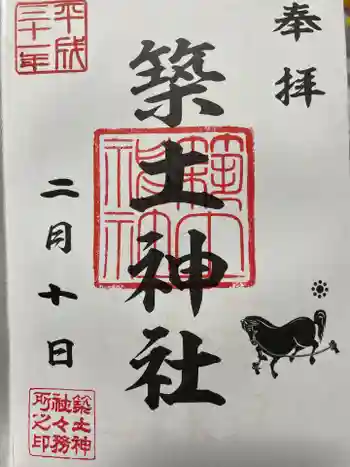 奉拝
築土神社
平成三十一年
二月十日
築土神社々務所之印